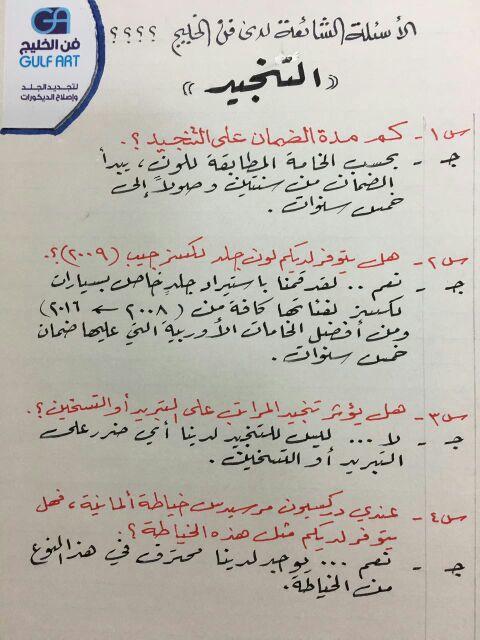 فن الخليج
GULF ART
لتجديد الجلد
وإصلاح الديكورات
الأسئلة الشائعة لدى فن الخليج ؟؟؟؟
« التنجيد »
س١- كم مدة الضمان على التنجيد؟.
جـ - بحسب الخامة المطابقة للون، يبدأ
الضمان من سنتين وصولاً إلى
خمس سنوات.
س٢- هل يتوفر لديكم لون جلد لكسز جيب (٢٠٠٩)؟.
جـ - نعم .. لقد قمنا باستيراد جلدٍ خاص بسيارات
لكسز لفئاتها كافة من (٢٠٠٨ ← ٢٠١٦)
ومن أفضل الخامات الأوربية التي عليها ضمان
خمس سنوات.
س٣- هل يؤثر تنجيد المراتب على التبريد أو التسخين؟.
جـ - لا ... ليس للتنجيد لدينا أي ضرر على
التبريد أو التسخين.
س٤- عندي دركسيون مرسيدس خياطة ألمانية، فهل
يتوفر لديكم مثل هذه الخياطة؟
جـ - نعم ... يوجد لدينا محترف في هذا النوع
من الخياطة.